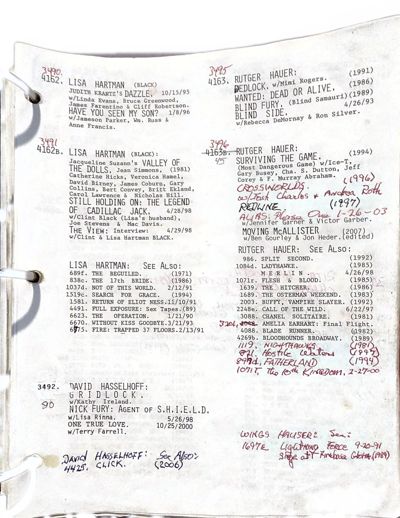 3490.
4162. LISA HARTMAN (BLACK)
JUDITH KRANTZ's DAZZLE. 10/15/95
w/Linda Evans, Bruce Greenwood,
James Farentino & Cliff Robertson.
HAVE YOU SEEN MY SON? 1/8/96
w/Jameson Parker, Wm. Russ &
Anne Francis.
3491
4162B. LISA HARTMAN (BLACK).
Jacqueline Susann's VALLEY OF
THE DOLLS. Jean Simmons, (1981)
Catherine Hicks, Veronica Hamel,
David Birney, James Coburn, Gary
Collins, Bert Convy, Britt Ekland,
Carol Lawrence & Nicholas Hill.
STILL HOLDING ON: THE LEGEND
OF CADILLAC JACK. 4/28/98
w/Clint Black (Lisa's husband),
Joe Stevens & Mac Davis.
THE VIEW: Interview: 4/29/98
w/Clint & Lisa Hartman BLACK.
LISA HARTMAN: See Also:
689f. THE BEGUILED. (1971)
838c. THE 17th BRIDE. (1986)
1037d. NOT OF THIS WORLD. 2/12/91
1519c. SEARCH FOR GRACE. (1994)
1581. RETURN OF ELIOT NESS. 15/10/91
4491. FULL EXPOSURE: Sex Tapes. (89)
6623. THE OPERATION. 1/21/90
6670. WITHOUT KISS GOODBYE. 3/21/93
6875. FIRE: TRAPPED 37 FLOORS. 2/13/91
3492. DAVID HASSELHOFF:
90
GRIDLOCK.
w/Kathy Ireland.
NICK FURY: AGENT OF S.H.I.E.L.D.
w/Lisa Rinna. 5/26/98
ONE TRUE LOVE. 10/25/2000
w/Terry Farrell.
DAVID HASSELHOFF: See Also:
4425. CLICK. (2006)
3495
4163. RUTGER HAUER: (1991)
DEDLOCK. w/Mimi Rogers. (1986)
WANTED: DEAD OR ALIVE.
BLIND FURY. (Blind Samauri) (1989)
BLIND SIDE. 4/26/93
w/Rebecca DeMornay & Ron Silver.
3496
4163B. RUTGER HAUER:
SURVIVING THE GAME. (1994)
(Most Dangerous Game) w/Ice-T,
Gary Busey, Cha. S. Dutton, Jeff
Corey & F. Murray Abraham.
CROSSWORLDS (1996)
w/Josh Charles & Andrea Roth
REDLINE (1997)
ALIAS: Phase One 1-26-03
w/Jennifer Garner & Victor Garber.
MOVING McALLISTER (2007)
w/Ben Gourley & Jon Heder. (edited)
RUTGER HAUER: See Also:
986. SPLIT SECOND. (1992)
1084d. LADYHAWKE. (1985)
MERLIN. 4/26/98
1071c. FLESH & BLOOD. (1985)
1639. THE HITCHER. (1986)
1689. THE OSTERMAN WEEKEND. (1983)
2003. BUFFY, VAMPIRE SLAYER. (1992)
2248e. CALL OF THE WILD. 6/22/97
3088. CHANEL SOLITAIRE. (1981)
AMELIA EARHART: Final Flight.
4088. BLADE RUNNER. (1982)
4269b. BLOODHOUNDS BROADWAY. (1989)
1119. NIGHTHAWKS (1981)
871. Hostile Waters (1997)
FATHERLAND (1994)
1071T. The 10th KINGDOM. 2-27-00
WINGS HAUSER: See:
1697E LIGHTNING FORCE 9-20-91